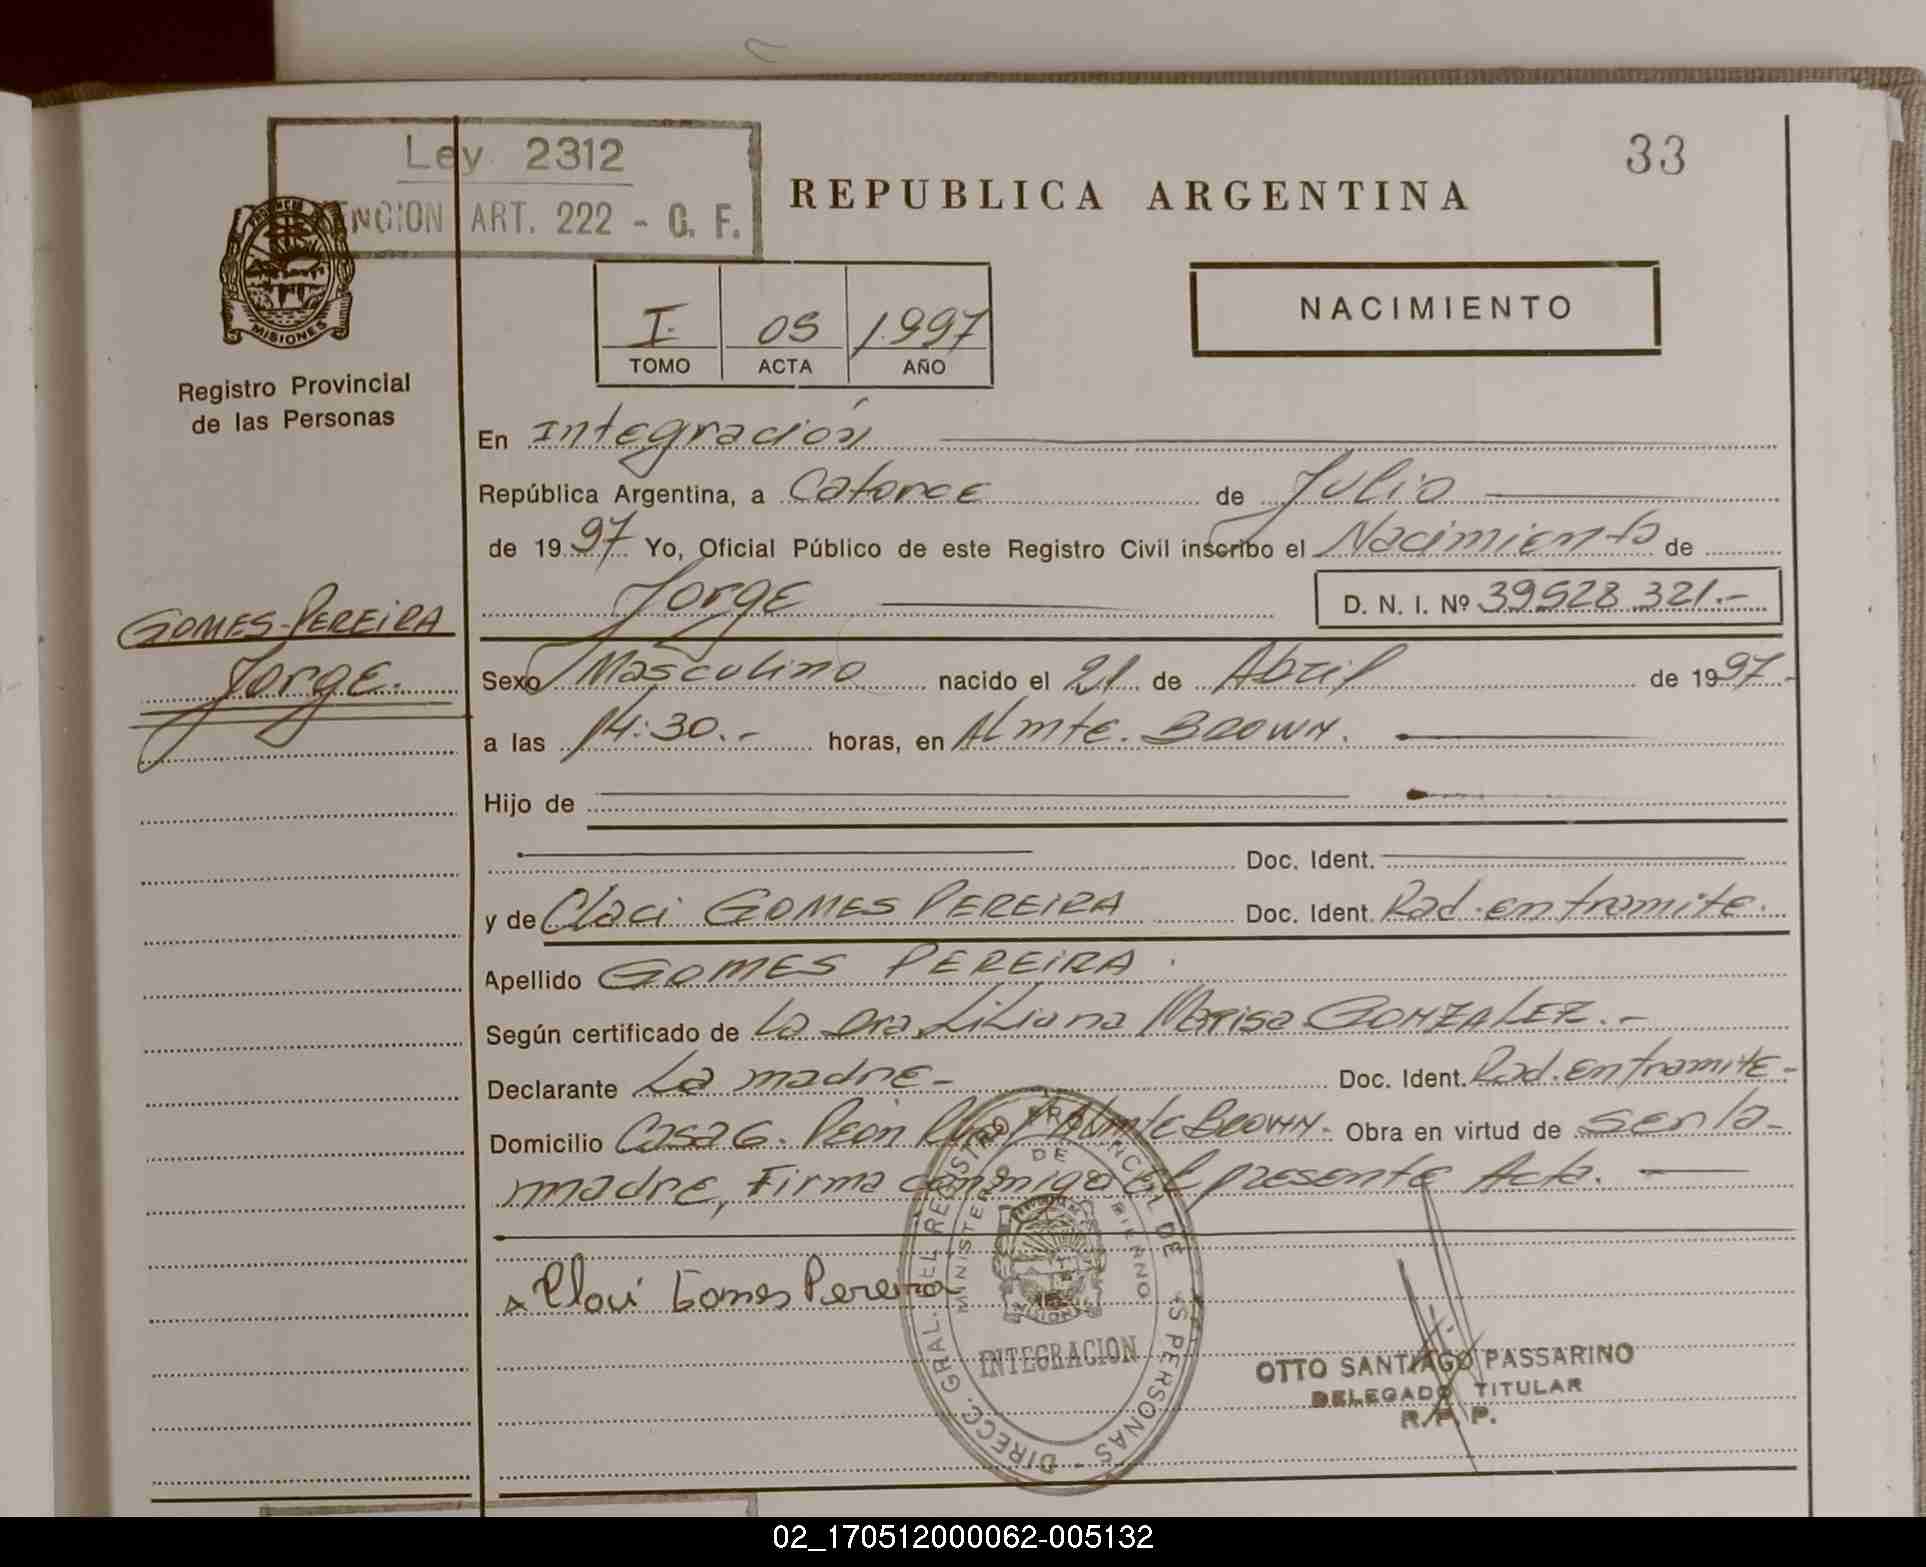 33
Ley 2312
ENCION ART. 222 - C. F.
REPUBLICA ARGENTINA
MISIONES
Registro Provincial
de las Personas
I. 05 1.997
TOMO ACTA AÑO
NACIMIENTO
En Integración
República Argentina, a Catorce de Julio
de 1997 Yo, Oficial Público de este Registro Civil inscribo el Nacimiento de
Jorge D. N. I. Nº 39528 321.-
GOMES-PEREIRA
Jorge.
Sexo Masculino nacido el 21 de Abril de 1997.-
a las 14:30.- horas, en Almte. BROWN.
Hijo de
Doc. Ident.
y de Claci GOMES PEREIRA Doc. Ident. Rad. en tramite.
Apellido GOMES PEREIRA.
Según certificado de La Dra. Liliana Marisa GONZALEZ.-
Declarante La madre- Doc. Ident. Rad. en tramite-
Domicilio Casa 6. Peón Almte BROWN- Obra en virtud de ser la-
madre, Firma conmigo el presente Acta.
Claci Gomes Pereira
DIRECC. GRAL. DEL REGISTRO PROVINCIAL DE LAS PERSONAS
MINISTERIO DE GOBIERNO
INTEGRACION
OTTO SANTIAGO PASSARINO
DELEGADO TITULAR
R. P. P.
02_170512000062-005132